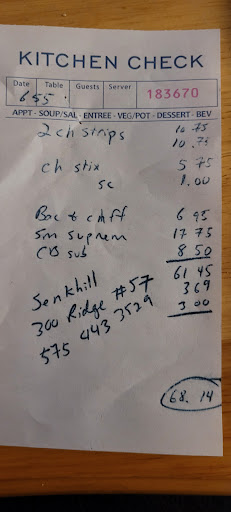 KITCHEN CHECK
Date Table Guests Server 183670
655
APPT - SOUP/SAL - ENTREE - VEG/POT - DESSERT - BEV
2 ch strips 10 75
10 75
ch stix 5 75
sc 1.00
6 95
sm suprem 17 75
CB sub 8 50
61 45
Senkhill 3 69
300 Ridge #57 3 00
575 443 3529
68. 14